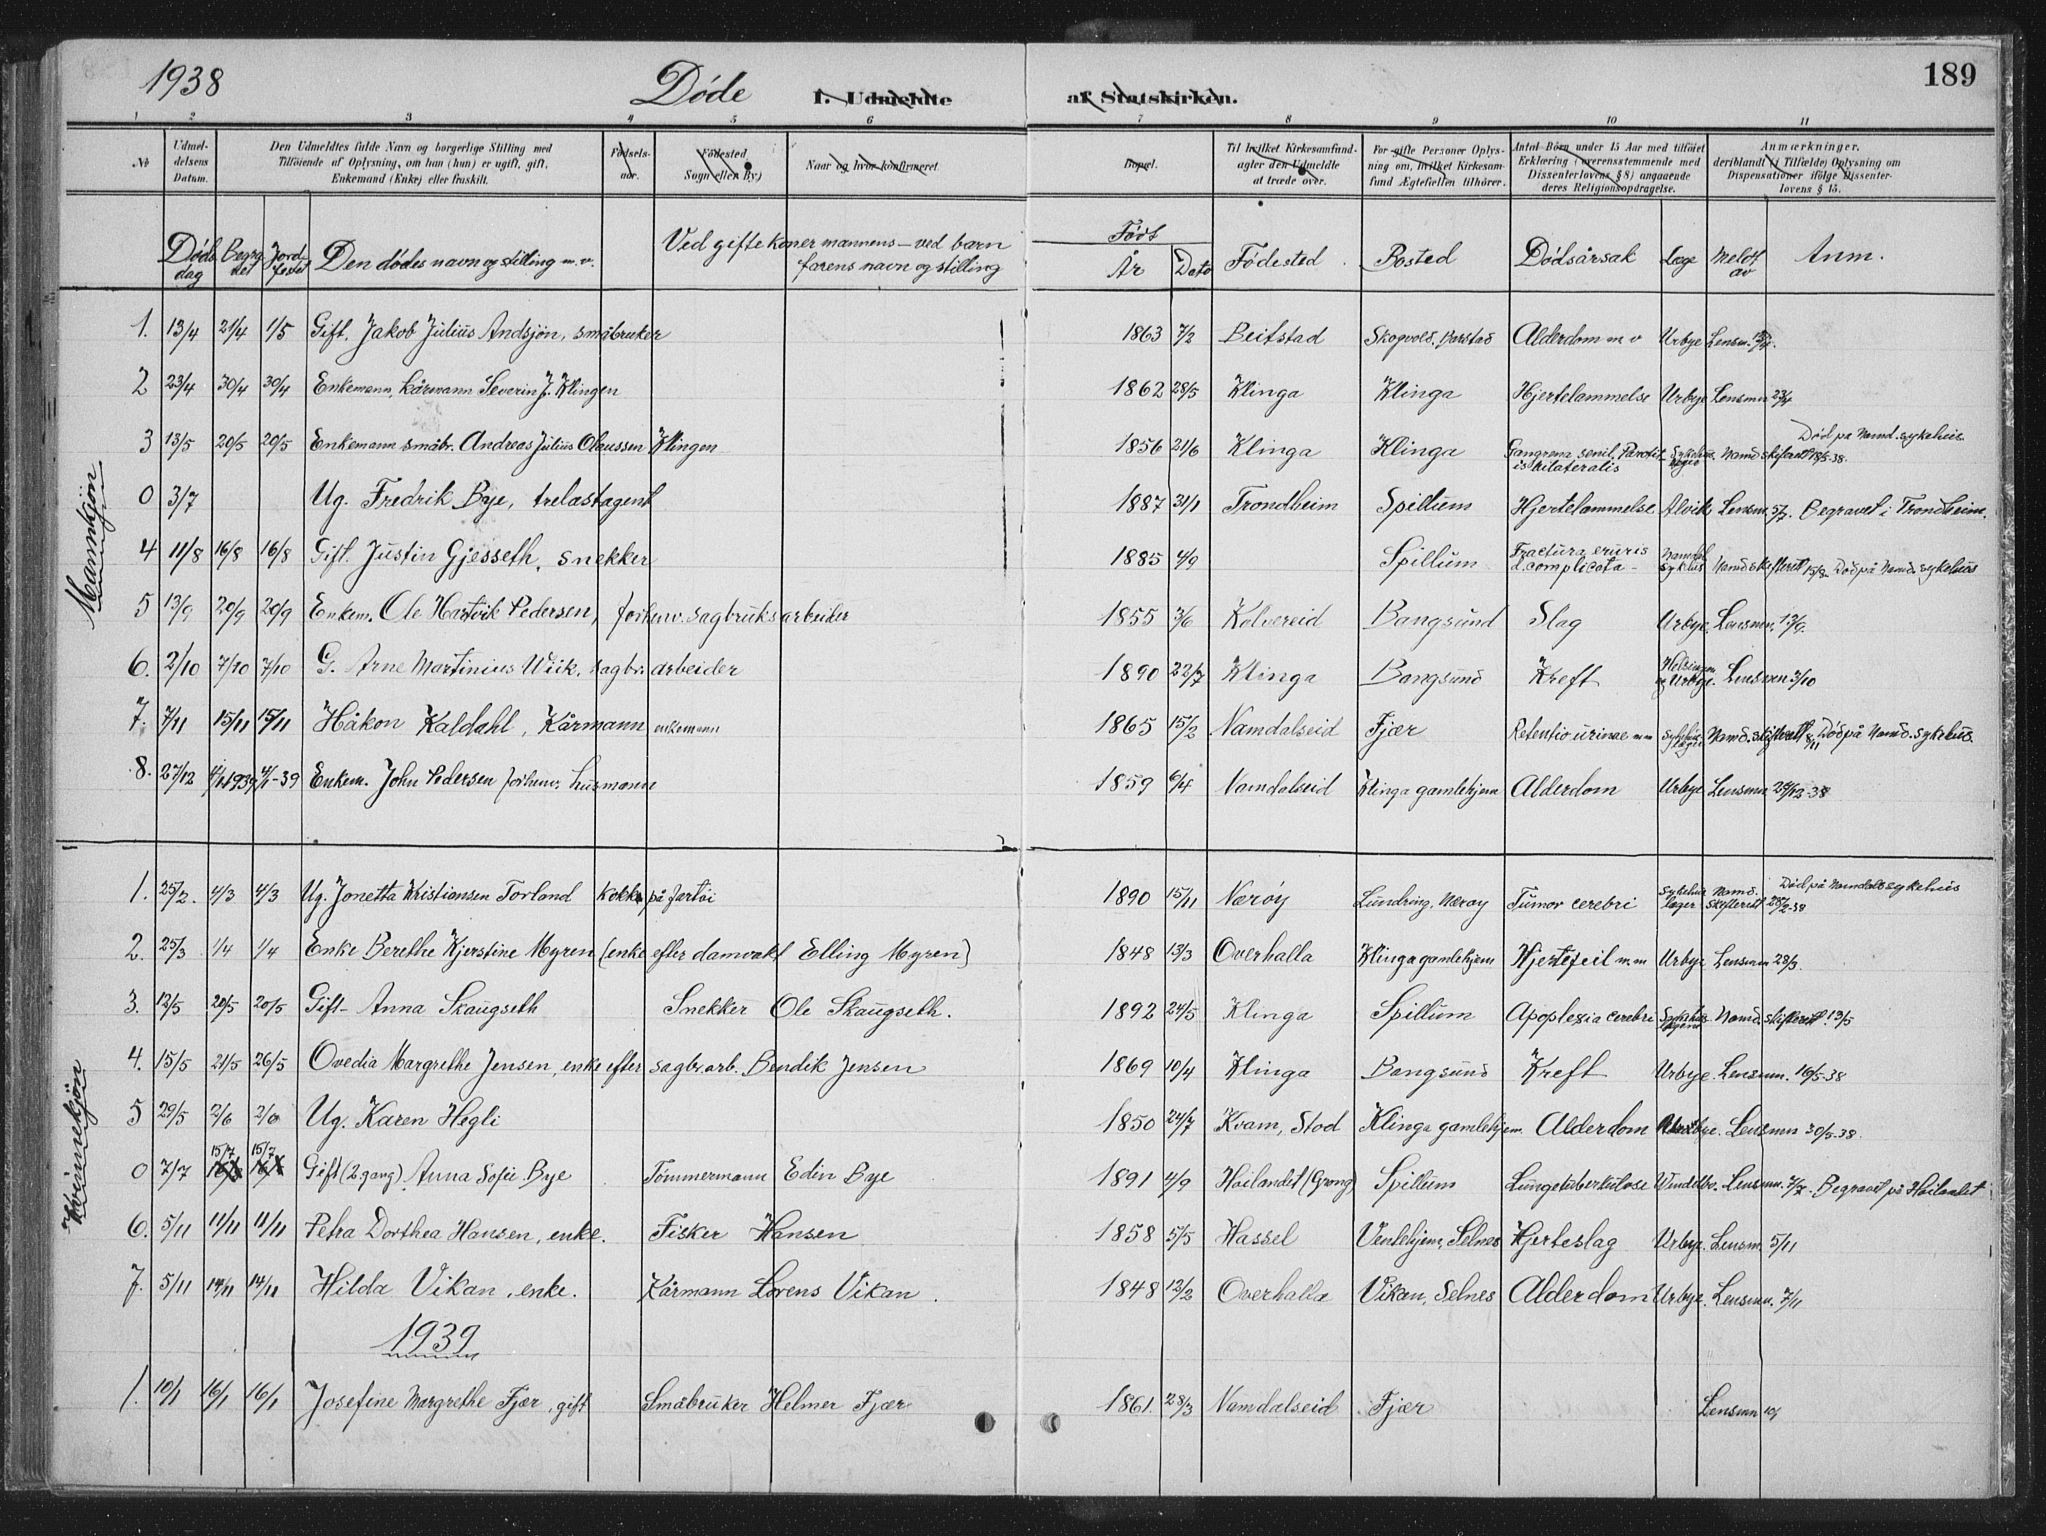 1938 Døde I. Udmeldte af Statskirken. 189
1 2 3 4 5 6 7 8 9 10 11
No. Udmeldelsens Datum. Den Udmeldtes fulde Navn og borgerlige Stilling med Tilføiende af Oplysning, om han (hun) er ugift, gift, Enkemand (Enke) eller fraskilt. Fødselsaar. Fødested Sogn eller By) Naar og hvor konfirmeret. Døpel. Til hvilket Kirkesamfund agter den Udmeldte at træde over. For gifte Personer Oplysning om, hvilket Kirkesamfund Ægtefællen tilhører. Antal Børn under 15 Aar med tilføiet Erklæring (overensstemmende med Dissenterlovens § 8) angaaende deres Religionsopdragelse. Anmerkninger, deriblandt (i Tilfælde) Oplysning om Dispensationer ifølge Dissenterlovens § 15.
Døds dag Begrdet Jordfestet Den dødes navn og stilling m. v. Ved gifte koner mannens – ved barn farens navn og stilling Født År Dato Fødested Bosted Dødsårsak Læge Meldt av Anm.
Mannkjøn
1. 13/4 21/4 1/5 Gift. Jakob Julius Andsjøn, småbruker 1863 7/2 Beitstad Skogvold, Barstad Alderdom m v Urbye Lensm.
2 23/4 30/4 30/4 Enkemann, kårmann Severin J. Klingen 1862 28/5 Klinga Klinga Hjertelammelse Urbye Lensmn 23/4
3 13/5 20/5 20/5 Enkemann småbr. Andreas Julius Olaussen Klingen 1856 21/6 Klinga Klinga Gangrena senil, Parotitis bilateralis Namd skifterett 18/5-38. Død på Namd. sykehus
0 3/7 Ug. Fredrik Bye, trelastagent 1887 31/1 Trondheim Spillum Hjertelammelse Alvik Lensm. 5/7. Begravet i Trondheim.
4 11/8 16/8 16/8 Gift. Justin Gjesseth, snekker 1885 4/9 Spillum Fractura cruris d. complicata – Namdal sykhus Namd skifterett 15/8 Død på Namd. sykehus
5 13/9 20/9 20/9 Enkem. Ole Hartvik Pedersen, forhenv. sagbruksarbeider 1855 3/6 Kolvereid Bangsund Slag Urbye, Lensmn, 13/9.
6. 2/10 7/10 7/10 G. Arne Martinius Wiik, sagbr. arbeider 1890 22/7 Klinga Bangsund Kreft og Urbye. Lensmn 3/10
7. 7/11 15/11 15/11 Håkon Kaldahl, Kårmann enkemann 1865 15/2 Namdalseid Fjær Retentio urinae mm Sykehuslægen Namd. skifterett 8/11 Død på Namd. sykehus
8. 27/12 4/1 1939 4/1-39 Enkem. John Pedersen forhenv. husmann 1859 6/4 Namdalseid Klinga gamlehjem Alderdom Urbye Lensmn 29/12-38
Kvinnekjøn
1. 25/2. 4/3 4/3 Ug. Jonetta Kristiansen Torland Kokke på fartøi 1890 15/11 Nærøy Lundring, Nærøy Tumor cerebri Sykehuslæger Namd. skifterett 28/2-38 Død på Namdals sykehus
2. 25/3 1/4 1/4 Enke Berethe Kjerstine Myren (enke efter damvakt Elling Myren) 1848 13/3 Overhalla Klinga gamlehjem Hjertefeil m.m Urbye Lensmn 28/3.
3. 12/5 20/5 20/5 Gift– Anna Skaugseth Snekker Ole Skaugseth. 1892 24/5 Klinga Spillum Apoplexia cerebri Namd. skifterett. 13/5
4. 15/5 21/5 26/5 Ovedia Margrethe Jensen, enke efter sagbr. arb. Bendik Jensen 1869 10/4 Klinga Bangsund Kreft Urbye. Lensmn. 16/5-38
5 29/5 2/6 2/6 Ug. Karen Hegli 1850 24/7 Kvam, Stod Klinga gamlehjem Alderdom Urbye. Lensmn 30/5-38.
0 7/7 15/7 15/7 Gift (2. gang) Anna Sofie Bye Tømmermann Edin Bye 1891 4/9 Høilandet (Grong) Spillum Lungetuberkulose Lensmn. 7/7. Begravet på Høilandet
6. 5/11 11/11 11/11 Petra Dorthea Hansen, enke. Fisker Hansen 1858 5/5 Hassel Ventehjem, Selnes Hjerteslag Urbye. Lensm. 5/11
7. 5/11 14/11 14/11 Hilda Vikan, enke. Kårmann Lorens Vikan. 1848 12/2 Overhalla Vikan, Selnes Alderdom Urbye. Lensmn. 7/11
1939
1. 10/1 16/1 16/1 Josefine Margrethe Fjær, gift Småbruker Helmer Fjær 1861 23/3 Namdalseid Fjær Lensmn